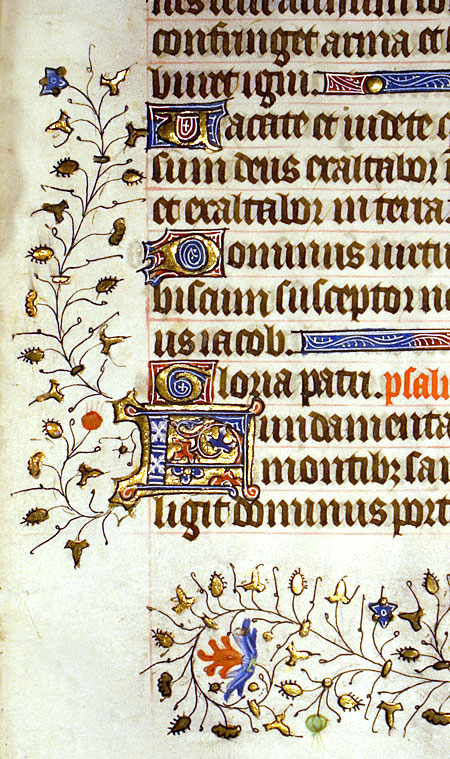 confringet arma et
buret igni.
Vacate et videte
sum deus exaltabor
et exaltabor in terra
Dominus virtu
biscum susceptor no
us iacob.
Gloria patri. psal
Fundamenta
montibz san
ligit dominus port